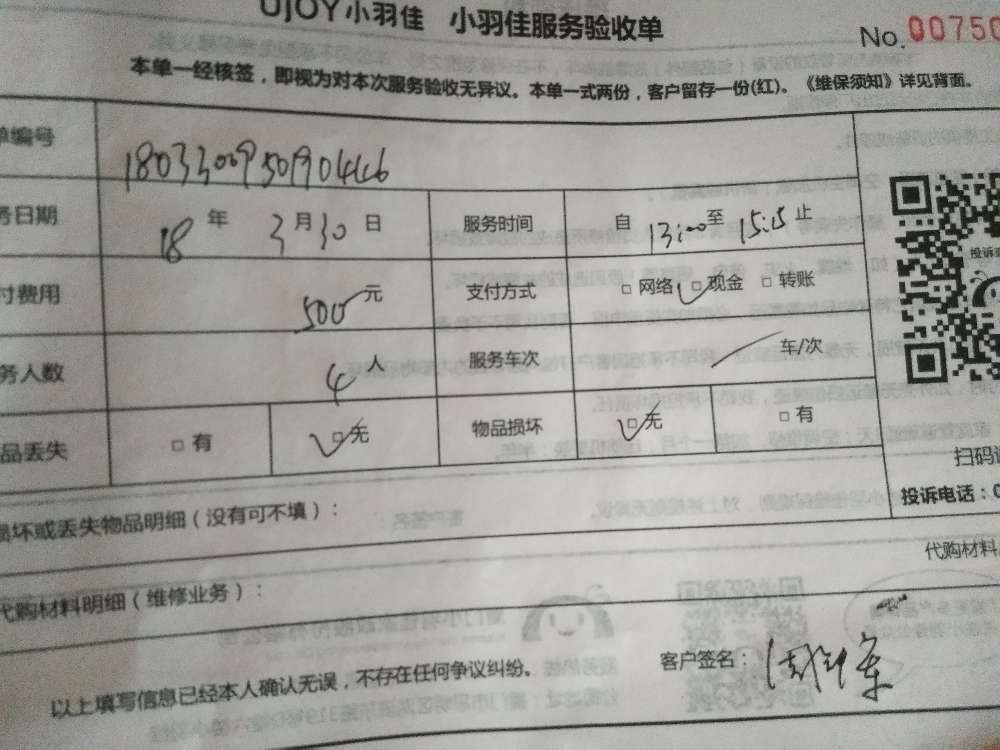 UJOY小羽佳 小羽佳服务验收单
No. 00750
本单一经核签，即视为对本次服务验收无异议。本单一式两份，客户留存一份(红)。《维保须知》详见背面。
单编号 18033009501904446
务日期 18 年 3 月 30 日 服务时间 自 13:00 至 15:15 止
付费用 500 元 支付方式 □ 网络 □ 现金 □ 转账
务人数 4 人 服务车次 车/次
品丢失 □ 有 □ 无 物品损坏 □ 无 □ 有
投诉
扫码
投诉电话：0
损坏或丢失物品明细（没有可不填）：
代购材料
代购材料明细（维修业务）：
以上填写信息已经本人确认无误，不存在任何争议纠纷。
客户签名：